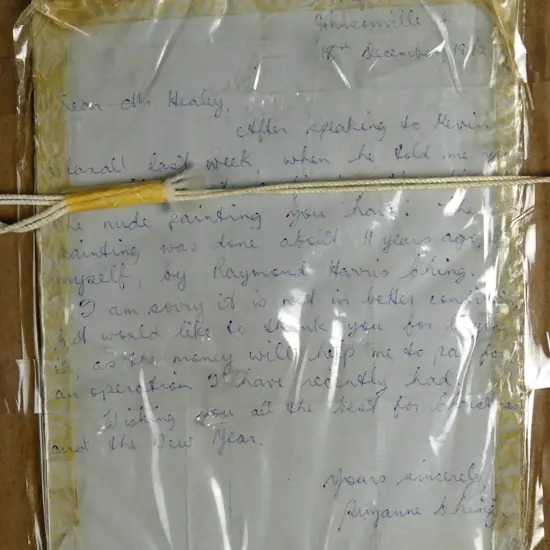 Johnsonville
18th December, 1972
Dear Mr Healey,
After speaking to Kevin
last week when he told me
the nude painting you have. The
painting was done about 11 years ago,
myself, by Raymond Harris Ching.
I am sorry it is not in better condition
but would like to thank you for buying
it as the money will help me to pay for
an operation I have recently had.
Wishing you all the best for Christmas
and the New Year.
Yours sincerely,
Suzanne Ching.